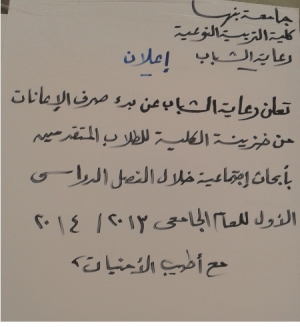 جامعة بنها
كلية التربية النوعية
رعاية الشباب
إعلان
تعلن رعاية الشباب عن بدء صرف الإعانات
من خزينة الكلية للطلاب المتقدمين
بأبحاث إجتماعية خلال الفصل الدراسى
الأول للعام الجامعى ٢٠١٣ / ٢٠١٤
مع أطيب الأمنيات ،